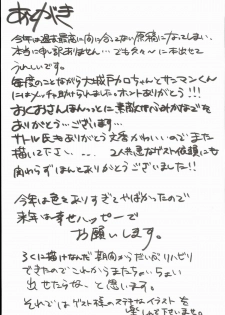 あとがき
今年は過去最高に間に合ってない原稿になってしまい、
本当に申し訳ありません…でも久々〜に本出せて
うれしいです。
毎度のことながら大城戸カロちゃんとサンマンくん
にはメッチャ助けられました。ホントありがとう!!!
おくおさんほんっとに素敵な
ありがとう…ございます…
サトル氏もありがとう 文房かわいいのでまた
描いて下さい… 2人共急なゲスト依頼にも
関わらずほんとありがとうございました!!
今年は色々ありすぎてやばかったので
来年は幸せハッピーで
お願いします。
ろくに描けなんだ期間からだいぶリハビリ
できたのでこれからまたちょいちょい
出せたらな、と思います。
それではゲスト様のステキなイラストを
楽しんで下さいませ。